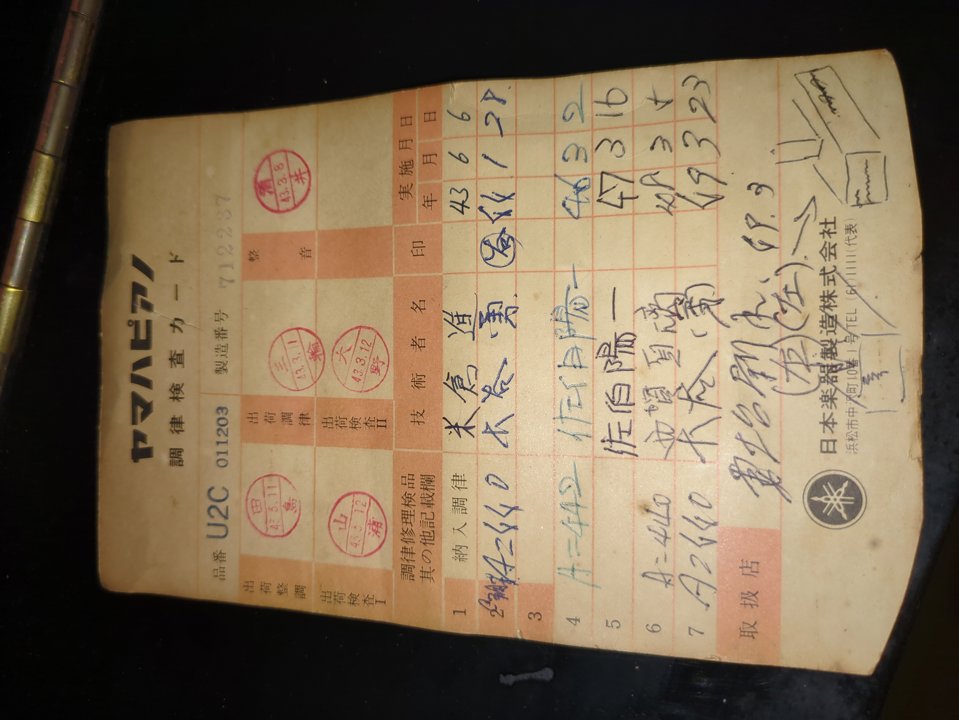 ヤマハピアノ
調律検査カード
品番 U2C 011203 製造番号 712237
出荷整調 田島 43.3.11 出荷調律 43.3.11 整音 43.3.8
出荷検査I 山浦 43.3.12 出荷検査II 大野 43.3.12
調律修理検品其の他記載欄 技術者名 印 実施年月日 年 月 日
1 納入調律 米倉 進 43 6 6
2 A=440 長谷 勇 44 1 28
3
4 A=442 佐伯陽一 46 3 2
5 佐伯陽一 47 3 16
6 A=440 48 3 4
7 A=440 49 3 23
取扱店
日本楽器製造株式会社
浜松市中沢町10番1号 TEL (61)1111(代表)